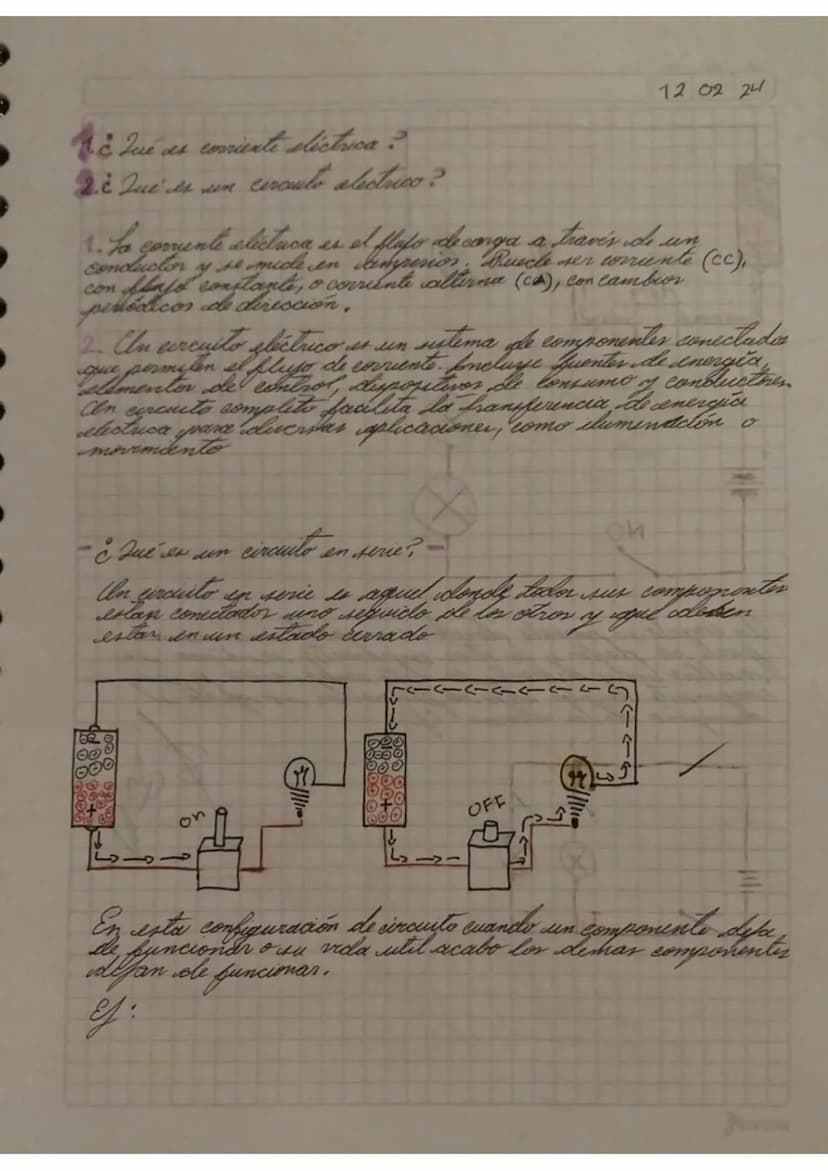 12 02 24
1. ¿Qué es corriente eléctrica?
2. ¿Qué es un circuito electrico?
1. La corriente eléctrica es el flujo de carga a través de un
conductor y se mide en amperios. Puede ser corriente (CC),
con flujo constante, o corriente alterna (CA), con cambios
periódicos de dirección.
2. Un circuito eléctrico es un sistema de componentes conectados
que permiten el flujo de corriente. Incluye fuentes de energía,
elementos de control, dispositivos de consumo y conductores.
Un circuito completo facilita la transferencia de energía
eléctrica para diversas aplicaciones, como iluminación o
movimiento
- ¿Qué es un circuito en serie? -
Un circuito en serie es aquel donde todos sus componentes
estan conectados uno seguido de los otros y que deben
estar en un estado cerrado
- +
on
- +
OFF
En esta configuración de circuito cuando un componente deja
de funcionar o su vida util acabo los demas componentes
dejan de funcionar.
Ej: